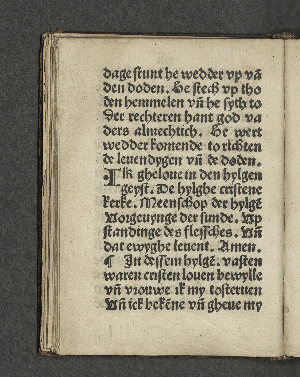 dage stunt he wedder vp vā
den doden. He stech vp tho
den hemmelen vn̄ he syth to
Der rechteren hant god va
ders almechtich. He wert
wedder komende to richten
de leuendygen vn̄ de doden.
Ik gheloue in den hylgen
geyst. De hylghe cristene
kerke. Meenschop der hylgē
Vorgeuynge der sunde. Vp
standinge des flessches. Vn̄
dat ewyghe leuent. Amen.
¶ In dessem hylgē. vasten
waren cristen louen bewylle
vn̄ vrouwe ik my to steruen
Vn̄ ick bekēne vn̄ gheue my